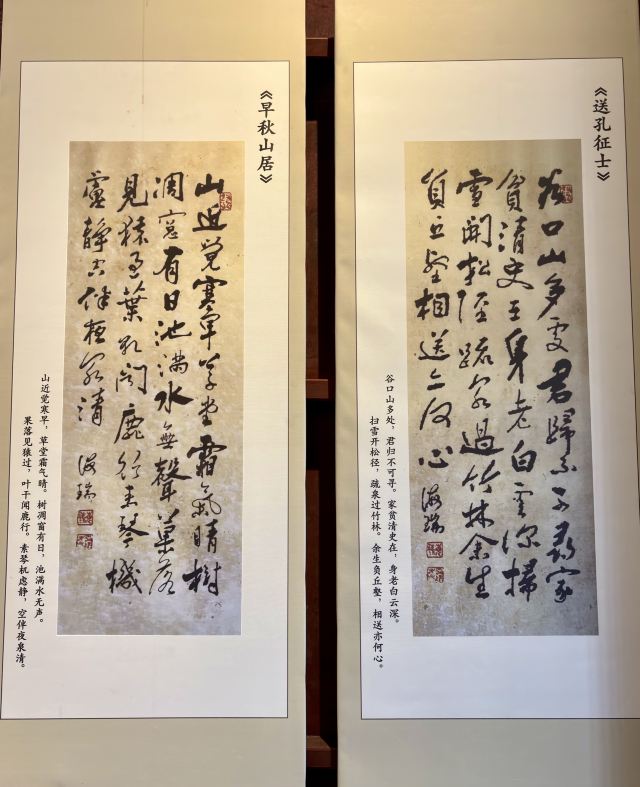 《送孔征士》
谷口山多處君歸不可尋家
貧清史在身老白雲深掃
雪開松徑疏泉過竹林余生
負丘壑相送亦何心 海瑞
谷口山多处，君归不可寻。家贫清史在，身老白云深。
扫雪开松径，疏泉过竹林。余生负丘壑，相送亦何心。
《早秋山居》
山近覺寒早草堂霜氣晴樹
凋窓有日池滿水無聲菓落
見猿過葉乾聞鹿行素琴機
慮靜空伴夜泉清 海瑞
山近觉寒早，草堂霜气晴。树凋窗有日，池满水无声。
果落见猿过，叶干闻鹿行。素琴机虑静，空伴夜泉清。